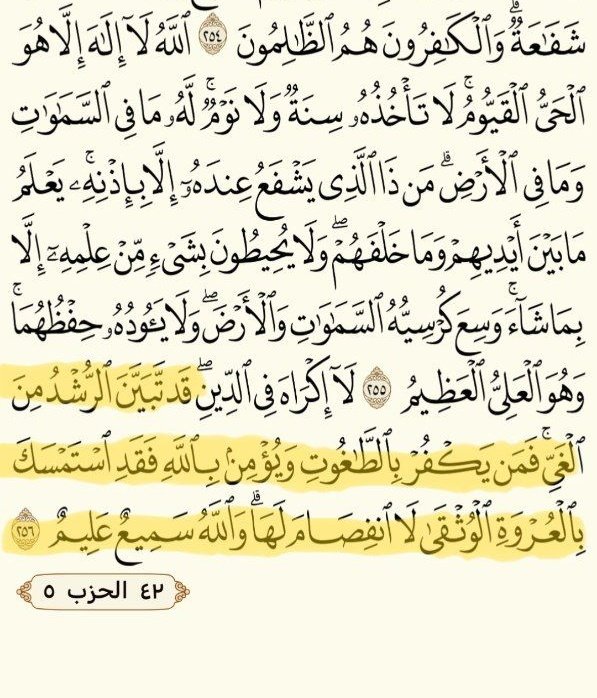 شَفَٰعَةٌۗ وَٱلْكَٰفِرُونَ هُمُ ٱلظَّٰلِمُونَ ٢٥٤ ٱللَّهُ لَآ إِلَٰهَ إِلَّا هُوَ
ٱلْحَىُّ ٱلْقَيُّومُۚ لَا تَأْخُذُهُۥ سِنَةٌ وَلَا نَوْمٌۚ لَّهُۥ مَا فِى ٱلسَّمَٰوَٰتِ
وَمَا فِى ٱلْأَرْضِۗ مَن ذَا ٱلَّذِى يَشْفَعُ عِندَهُۥٓ إِلَّا بِإِذْنِهِۦۚ يَعْلَمُ
مَا بَيْنَ أَيْدِيهِمْ وَمَا خَلْفَهُمْۖ وَلَا يُحِيطُونَ بِشَىْءٍ مِّنْ عِلْمِهِۦٓ إِلَّا
بِمَا شَآءَۚ وَسِعَ كُرْسِيُّهُ ٱلسَّمَٰوَٰتِ وَٱلْأَرْضَۖ وَلَا يَـُٔودُهُۥ حِفْظُهُمَاۚ
وَهُوَ ٱلْعَلِىُّ ٱلْعَظِيمُ ٢٥٥ لَآ إِكْرَاهَ فِى ٱلدِّينِۖ قَد تَّبَيَّنَ ٱلرُّشْدُ مِنَ
ٱلْغَىِّۚ فَمَن يَكْفُرْ بِٱلطَّٰغُوتِ وَيُؤْمِنۢ بِٱللَّهِ فَقَدِ ٱسْتَمْسَكَ
بِٱلْعُرْوَةِ ٱلْوُثْقَىٰ لَا ٱنفِصَامَ لَهَاۗ وَٱللَّهُ سَمِيعٌ عَلِيمٌ ٢٥٦
٤٢ الحزب ٥